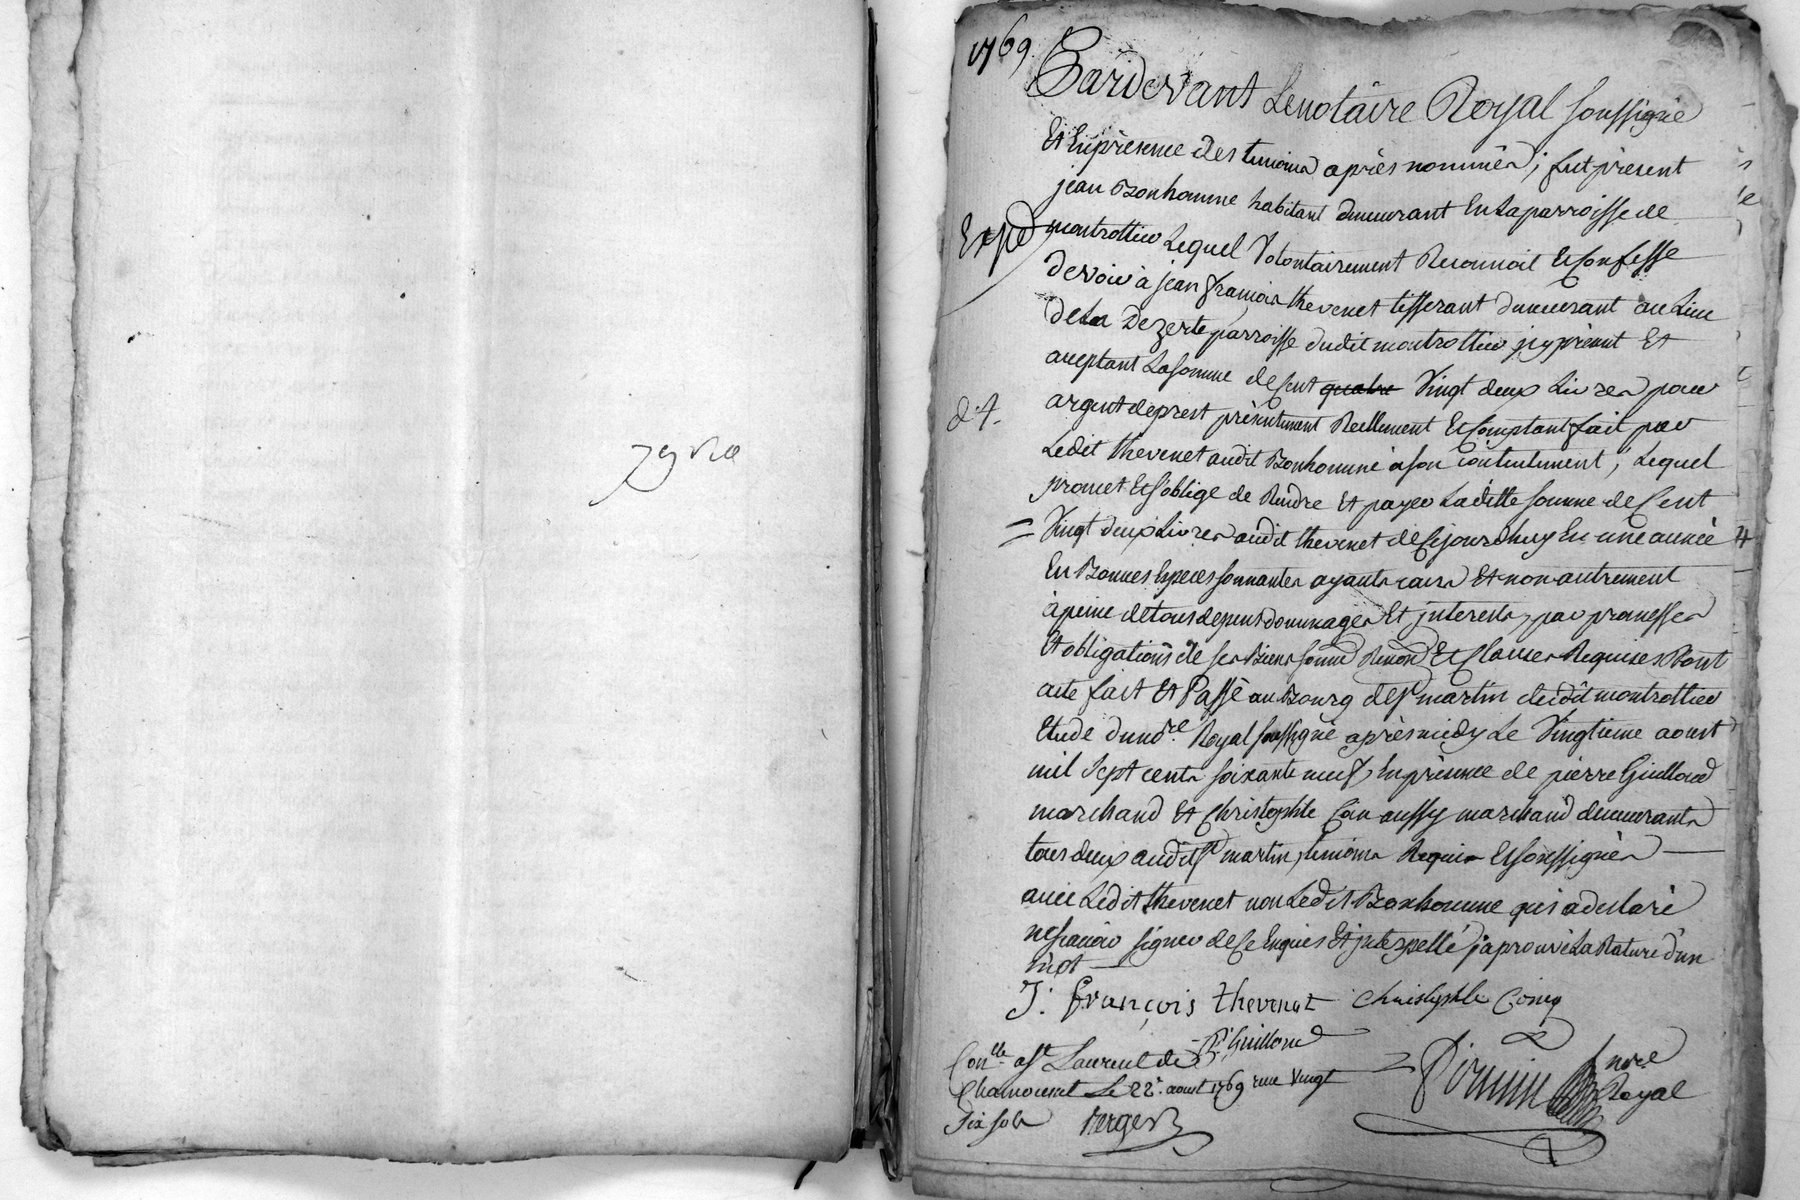 1769
Pardevant Lenotaire Royal soussigné
Et Enprésence des temoins après nommés; fut présent
jean Bonhomme habitant demeurant En Laparroisse de
Expéd
montrottier Lequel Volontairement Reconnoit Et Confesse
devoir à jean françois thevenet tisserant demeurant au Lieu
dela Dezerte parroisse dudit montrottier jcy présent Et
aceptant La somme de Cent quatre Vingt deux Livres pour
argent de prest présentement Reellement Et Comptant fait par
Ledit thevenet audit Bonhomme à son contentement, Lequel
promet Et s'oblige de Rendre Et payer Laditte somme de Cent
Vingt deux Livres audit thevenet de Ce jourdhuy En une année
En Bonnes Especes sonnantes ayants cours Et non autrement
à peine de tous depens dommages Et jnterests, par promesses
Et obligations de ses Biens soumd Renond Et Clauses Requises Dont
acte fait Et Passé au Bourg de St martin dudit montrottier
Etude dudnore Royal soussigné après midy Le Vingtieme aoust
mil sept cents soixante neuf, En présence de pierre Guilloud
marchand Et Christophle Coin aussy marchand demeurants
tous deux audit St martin, temoins Requis Et soussignés
avec Ledit thevenet non Ledit Bonhomme qui a declaré
ne sçavoir signer de Ce Enquis Et jnterpellé j'aprouve La Rature d'un
mot
J. françois thevenet Christophle Coing
P. Guilloud
Conlle a St Laurent de
Chamousset Le 22e aoust 1769 reçu Vingt
six sols Verger
nore
Royal